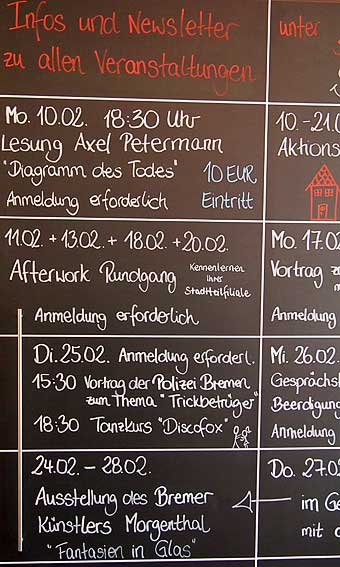 Infos und Newsletter
zu allen Veranstaltungen
unter
Mo. 10.02. 18:30 Uhr
Lesung Axel Petermann
"Diagramm des Todes" 10 EUR
Anmeldung erforderlich Eintritt
10.-21.0
Aktions
11.02. + 13.02. + 18.02. + 20.02.
Afterwork Rundgang
Kennenlernen
Ihrer
Stadtteilfiliale
Anmeldung erforderlich
Mo. 17.02
Vortrag
Anmeldung
Di. 25.02. Anmeldung erforderl.
15:30 Vortrag der Polizei Bremen
zum Thema "Trickbetrüger"
18:30 Tanzkurs "Discofox"
Mi. 26.02.
Gesprächs
Beerdigung
Anmeldung
24.02. – 28.02.
Ausstellung des Bremer
Künstlers Morgenthal
"Fantasien in Glas"
Do. 27.02
im Ge
mit